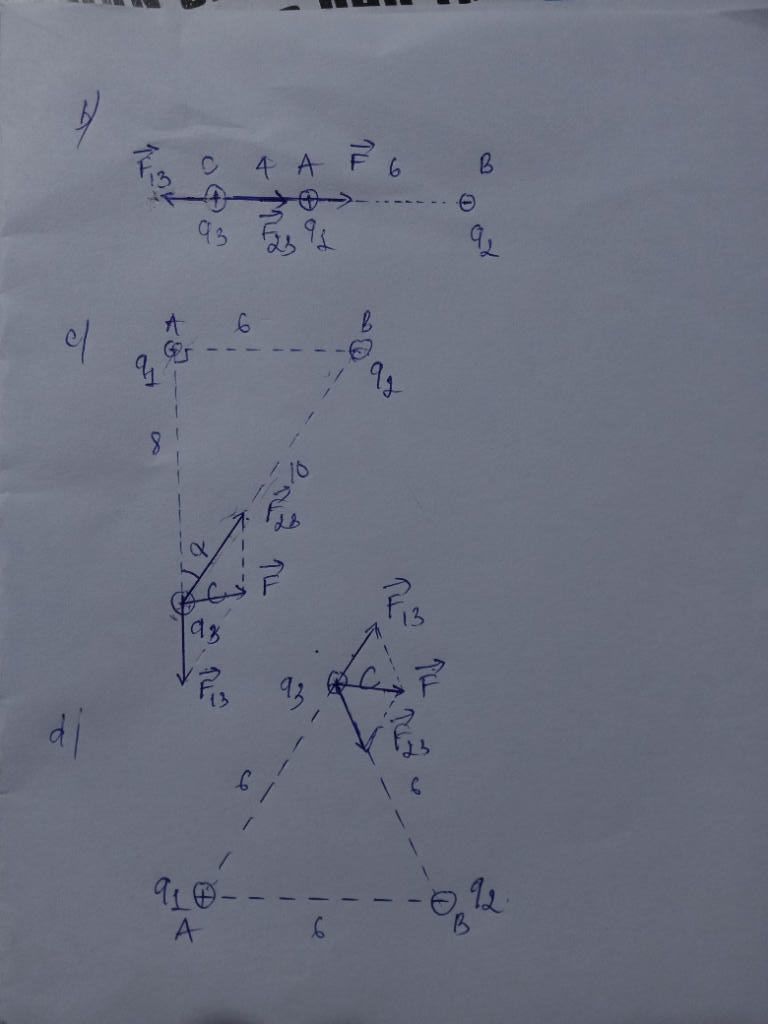 b)
F₁₃ C 4 A F 6 B
q₃ F₂₃ q₁ q₂
c)
A 6 B
q₁ q₂
8
10
α F₂₃
C F
q₃
F₁₃
d)
F₁₃
q₃ C F
F₂₃
6 6
q₁ + - q₂
A 6 B